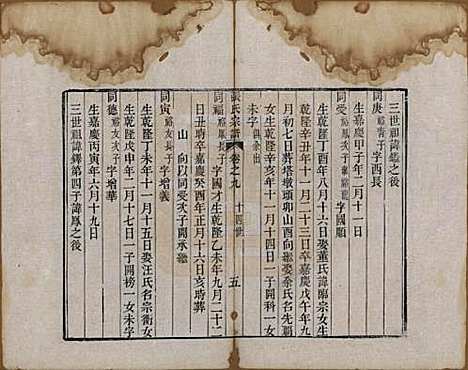 三世祖諱鑑之後
同庚 字西長
生嘉慶甲子年二月十一日
同受 字國順
生乾隆丁酉年八月十六日娶董氏諱臨宗女生
乾隆辛丑年十一月二十三日卒嘉慶戊午年九
月初七日葬塔墩頭卯山酉向繼娶余氏名先覊
女生乾隆辛亥年十一月十四日一子開科一女
未字 俱余出
張氏宗譜 卷之九 十四世 五
同福 字國才生乾隆乙未年九月二十二
日丑時卒嘉慶癸酉年正月十六日亥時葬
山 向以同受次子開承繼
同寅 友長子字增義
生乾隆丁未年十一月十五日娶汪氏名宗衡女
同德 友次子字增華
生乾隆戊申年二月十七日一子開榜一女未字
生嘉慶丙寅年六月十九日
三世祖諱鐸第四子諱鳳之後